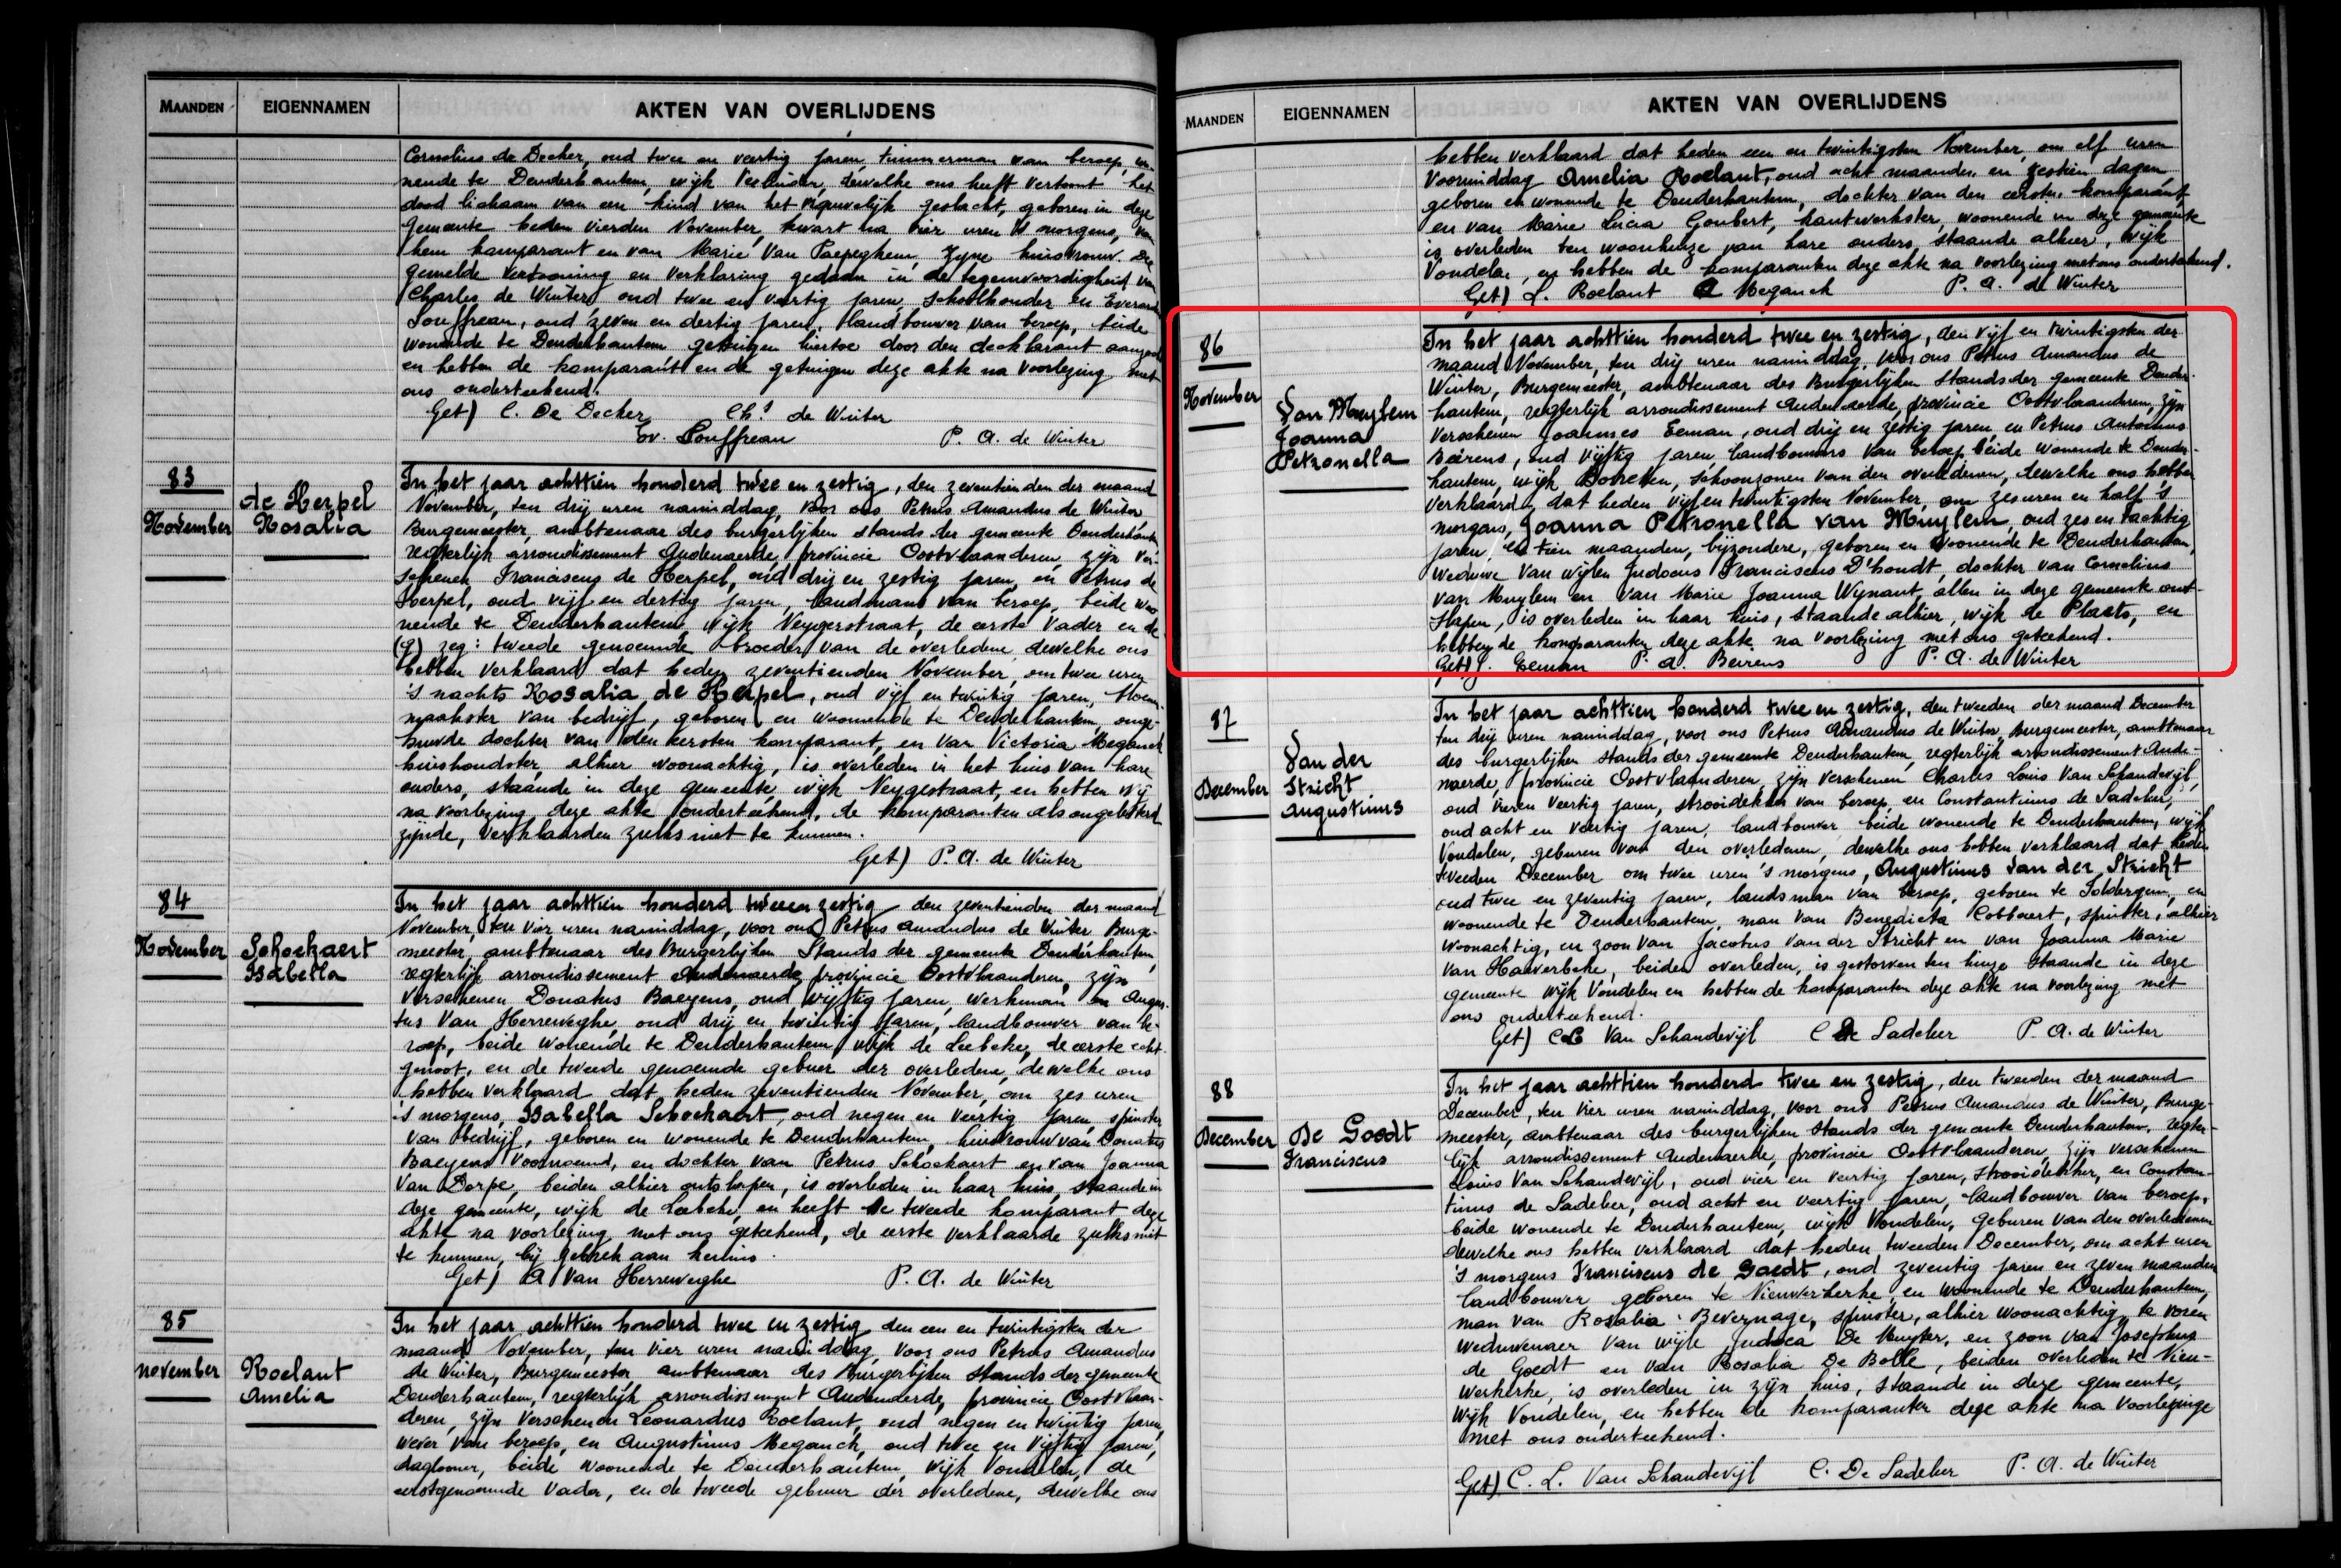 MAANDEN
EIGENNAMEN
AKTEN VAN OVERLIJDENS
Cornelius de Decker, oud twee en veertig jaren, timmerman van beroep, wo-
nende te Denderhautem, wijk dewelke ons heeft vertoont het
dood lichaam van een kind van het vrouwelijk geslacht, geboren in deze
Gemeente heden vierden November, kwart na vier uren 's morgens, van
hem komparant en van Marie Van Paepeghem, zyne huisvrouw. De
gemelde vertooning en verklaring gedaan in de tegenwoordigheid van
Charles de Winter, oud twee en veertig jaren, schoolhouder en Everard
Souffreau, oud zeven en dertig jaren, Handbouwer van beroep, beide
wonende te Denderhautem getuigen hiertoe door den decklarant aanzocht
en hebben de komparant en de getuigen deze akte na voorlezing met
ons onderteekend.
Get) C. De Decker Ch.s de Winter
Ev. Souffreau P. A. de Winter
83
November
de Herpel
Rosalia
In het jaar achttien honderd twee en zestig, den zeventienden der maand
November, ten drij uren namiddag, voor ons Petrus Amandus de Winter
Burgemeester, ambtenaar des burgerlijken stands der gemeente Denderhautem
regterlijk arrondissement Audenaerde, provincie Oostvlaanderen, zijn ver-
schenen Franciscus de Herpel, oud drij en zestig jaren, en Petrus de
Herpel, oud vijf en dertig jaren, landmans van beroep, beide wo-
nende te Denderhautem wijk Neygerstraat, de eerste vader en de
(g) zeg: tweede genoemde broeder van de overledene dewelke ons
hebben verklaard dat heden zeventienden November, om twee uren
's nachts Rosalia de Herpel, oud vijf en twintig jaren, bloem-
maakster van bedrijf, geboren en woonende te Denderhautem, onge-
huwde dochter van den eersten komparant, en van Victoria Meganck
huishoudster, alhier woonachtig, is overleden in het huis van hare
ouders, staande in deze gemeente wijk Neygestraat, en hebben wij
na voorlezing deze akte onderteekend, de komparanten als ongeletterd
zijnde, verklaarden zulks niet te kunnen.
Get) P. A. de Winter
84
November
Schockaert
Isabella
In het jaar achttien honderd twee en zestig den zeventienden der maand
November, ten vier uren namiddag, voor ons Petrus Amandus de Winter Burge-
meester, ambtenaar des Burgerlijken Stands der gemeente Denderhautem,
regterlijk arrondissement Audenaerde, provincie Oostvlaanderen, zijn
verschenen Donatus Baeyens, oud vijftig jaren, werkman en Augus-
tus Van Herreweghe, oud drij en twintig jaren, landbouwer van be-
roep, beide wonende te Denderhautem, wijk de Leebeke, de eerste echt-
genoot, en de tweede genoemde gebuer der overledene, dewelke ons
hebben verklaard dat heden zeventienden November, om zes uren
's morgens, Isabella Schockaert, oud negen en veertig jaren, spinster
van bedrijf, geboren en wonende te Denderhautem, huisvrouw van Donatus
Baeyens voornoemd, en dochter van Petrus Schockaert en van Joanna
Van Dorpe, beiden alhier ontslapen, is overleden in haar huis, staande in
deze gemeente, wijk de Leebeke, en heeft de tweede komparant deze
akte na voorlezing met ons geteekend, de eerste verklaarde zulks niet
te kunnen, bij gebrek aan kennis.
Get) A Van Herreweghe P. A. de Winter
85
november
Roelant
Amelia
In het jaar achttien honderd twee en zestig den een en twintigsten der
maand November, ten vier uren namiddag, voor ons Petrus Amandus
de Winter, Burgemeester ambtenaar des Burgerlijken Stands der gemeente
Denderhautem, regterlijk arrondissement Audenaerde, provincie Oostvlaan-
deren, zijn verschenen Leonardus Roelant, oud negen en twintig jaren,
wever van beroep, en Augustinus Meganck, oud twee en vijftig jaren,
daglooner, beide woonende te Denderhautem, wijk Vondelen, de
eerstgenoemde vader, en de tweede gebuur der overledene, dewelke ons
MAANDEN
EIGENNAMEN
AKTEN VAN OVERLIJDENS
hebben verklaard dat heden een en twintigsten November, om elf uren
voormiddag Amelia Roelant, oud acht maanden en zestien dagen,
geboren en wonende te Denderhautem, dochter van den eersten komparant
en van Marie Lucia Goubert, kantwerkster, woonende in deze gemeente
is overleden ten woonhuize van hare ouders, staande alhier, wijk
Vondelen, en hebben de komparanten deze akte na voorlezing met ons onderteekend.
Get) L. Roelant A Meganck P. A. de Winter
86
November
Van Muylem
Joanna
Petronella
In het jaar achttien honderd twee en zestig, den vijf en twintigsten der
maand November, ten drij uren namiddag, voor ons Petrus Amandus de
Winter, Burgemeester, ambtenaar des Burgerlijken Stands der gemeente Dender-
hautem, regterlijk arrondissement Audenaerde, provincie Oostvlaanderen, zijn
verschenen Joannes Eeman, oud drij en zestig jaren en Petrus Antonius
Beirens, oud vijftig jaren, landbouwers van beroep, beide wonende te Dender-
hautem, wijk schoonzonen van den overledenen, dewelke ons hebben
verklaard, dat heden vijf en twintigsten November, om zes uren en half 's
morgens, Joanna Petronella van Muylem, oud zes en tachtig
jaren en tien maanden, bijzondere, geboren en woonende te Denderhautem,
weduwe van wijlen Judocus Franciscus D'hondt, dochter van Cornelius
van Muylem en van Marie Joanna Wynant, allen in deze gemeente ont-
slapen, is overleden in haar huis, staande alhier, wijk de Plaets, en
hebben de komparanten deze akte na voorlezing met ons geteekend.
Get) J. Eeman P. A. Beirens P. A. de Winter
87
December
Van der
Stricht
Augustinus
In het jaar achttien honderd twee en zestig, den tweeden der maand December
ten drij uren namiddag, voor ons Petrus Amandus de Winter, Burgemeester, ambtenaar
des burgerlijken stands der gemeente Denderhautem, regterlijk arrondissement Aude-
naerde, provincie Oostvlaanderen, zijn verschenen Charles Louis Van Schandevijl,
oud vier en veertig jaren, strooidekker van beroep, en Constantinus de Sadeleer,
oud acht en veertig jaren, landbouwer beide wonende te Denderhautem, wijk
Vondelen, geburen van den overledenen, dewelke ons hebben verklaard dat heden
tweeden December om twee uren 's morgens, Augustinus Van der Stricht
oud twee en zeventig jaren, landsman van beroep, geboren te en
woonende te Denderhautem, man van Benedicta Cobbaert, spinster, alhier
woonachtig, en zoon van Jacobus Van der Stricht en van Joanna Marie
Van Haeverbeke, beiden overleden, is gestorven ten huize staande in deze
gemeente wijk Vondelen en hebben de komparanten deze akte na voorlezing met
ons onderteekend.
Get) C L Van Schandevijl C De Sadeleer P. A. de Winter
88
December
De Goedt
Franciscus
In het jaar achttien honderd twee en zestig, den tweeden der maand
December, ten vier uren namiddag, voor ons Petrus Amandus de Winter, Burge-
meester, ambtenaar des burgerlijken stands der gemeente Denderhautem, regter-
lijk arrondissement Audenaerde, provincie Oostvlaanderen, zijn verschenen
Louis Van Schandevijl, oud vier en veertig jaren, strooidekker, en Constan-
tinus de Sadeleer, oud acht en veertig jaren, landbouwer van beroep,
beide wonende te Denderhautem, wijk Vondelen, geburen van den overledenen
dewelke ons hebben verklaard dat heden tweeden December, om acht uren
's morgens Franciscus de Goedt, oud zeventig jaren en zeven maanden
landbouwer geboren te Nieuwerkerke, en woonende te Denderhautem,
man van Rosalia Bevernage, spinster, alhier woonachtig, te voren
weduwenaer van wijle Judoca De Muyter, en zoon van Josephus
de Goedt en van Rosalia De Bolle, beiden overleden te Nieu-
werkerke, is overleden in zijn huis, staande in deze gemeente,
wijk Vondelen, en hebben de komparanten deze akte na voorlezinge
met ons onderteekend.
Get) C. L. Van Schandevijl C. De Sadeleer P. A. de Winter